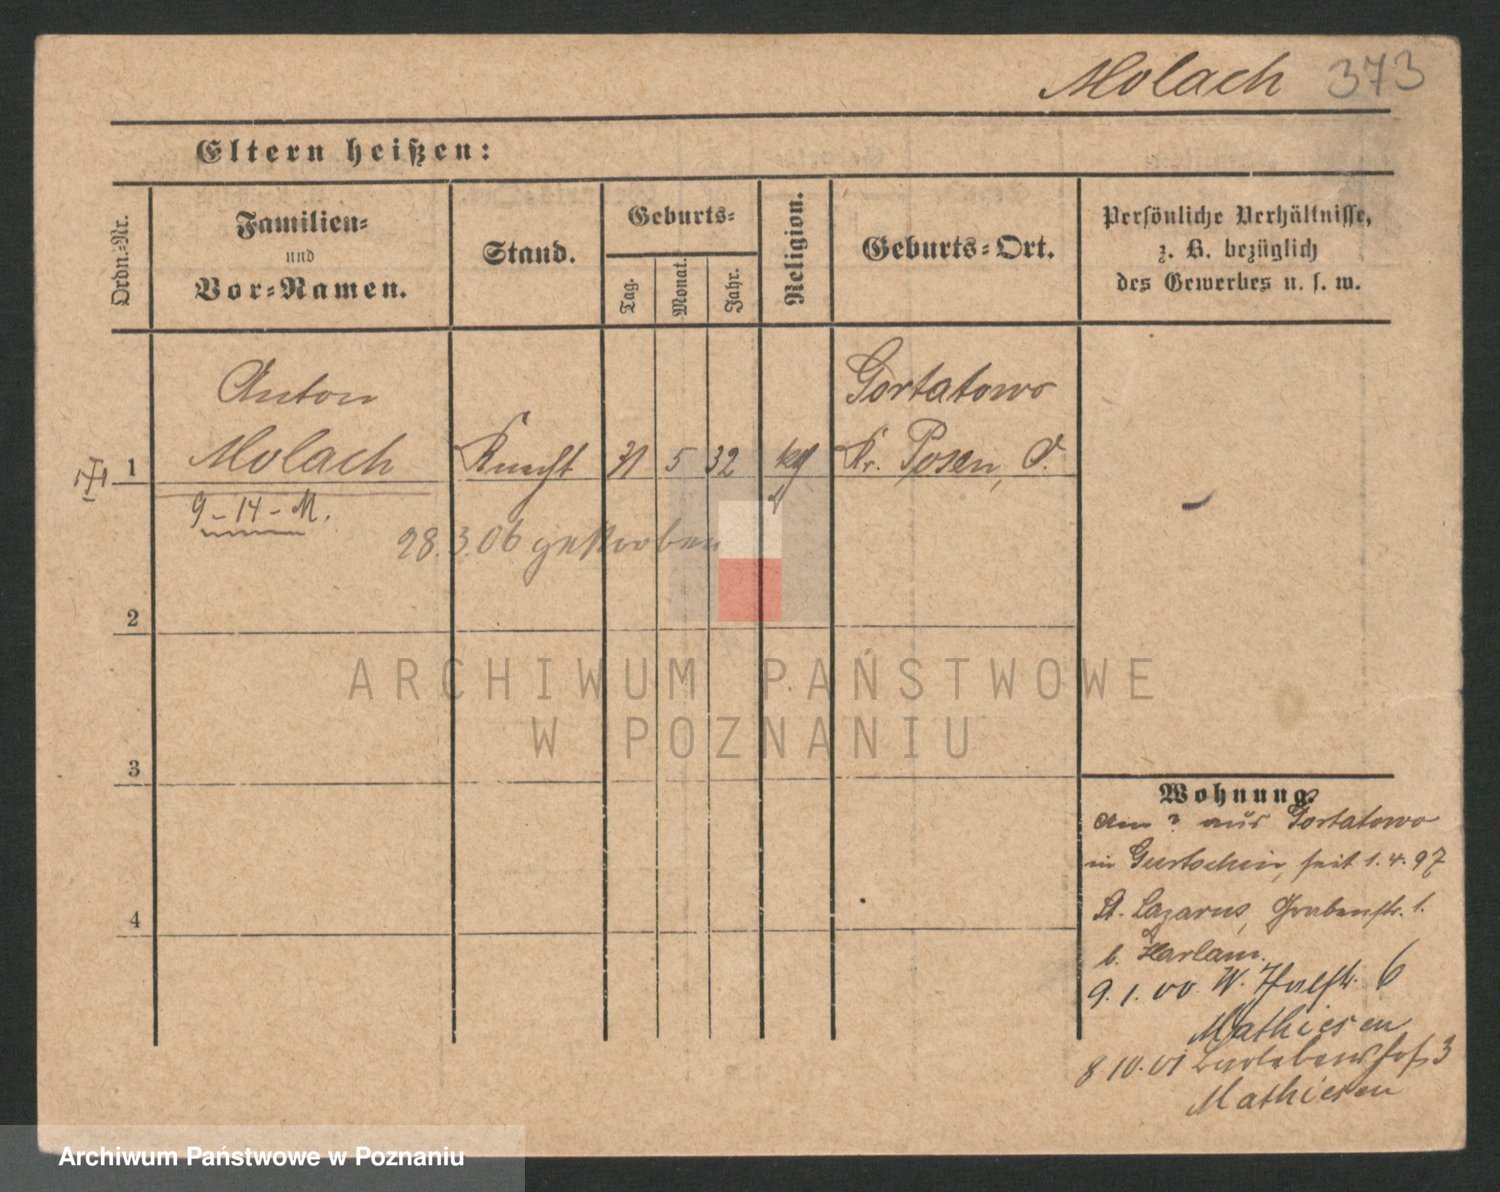 Molach 373
Eltern heißen:
Ordn.-Nr.
Familien-
und
Vor-Namen.
Stand.
Geburts-
Tag.
Monat.
Jahr.
Religion.
Geburts-Ort.
Persönliche Verhältnisse,
z. B. bezüglich
des Gewerbes u. s. w.
Anton
Molach
Knecht 31 5 32 kg
Gortatowo
Kr. Posen, O.
1
9-14-M.
28.3.06 gestorben
2
3
4
Wohnung.
Am ? aus Gortatowo
in Gurtschin, seit 1.4.97
St. Lazarus, Grabenstr. 1.
b. Harlam.
9.1.00 W. 6
Mathiesen
8 10.01 3
Mathiesen
ARCHIWUM PAŃSTWOWE
W POZNANIU
Archiwum Państwowe w Poznaniu